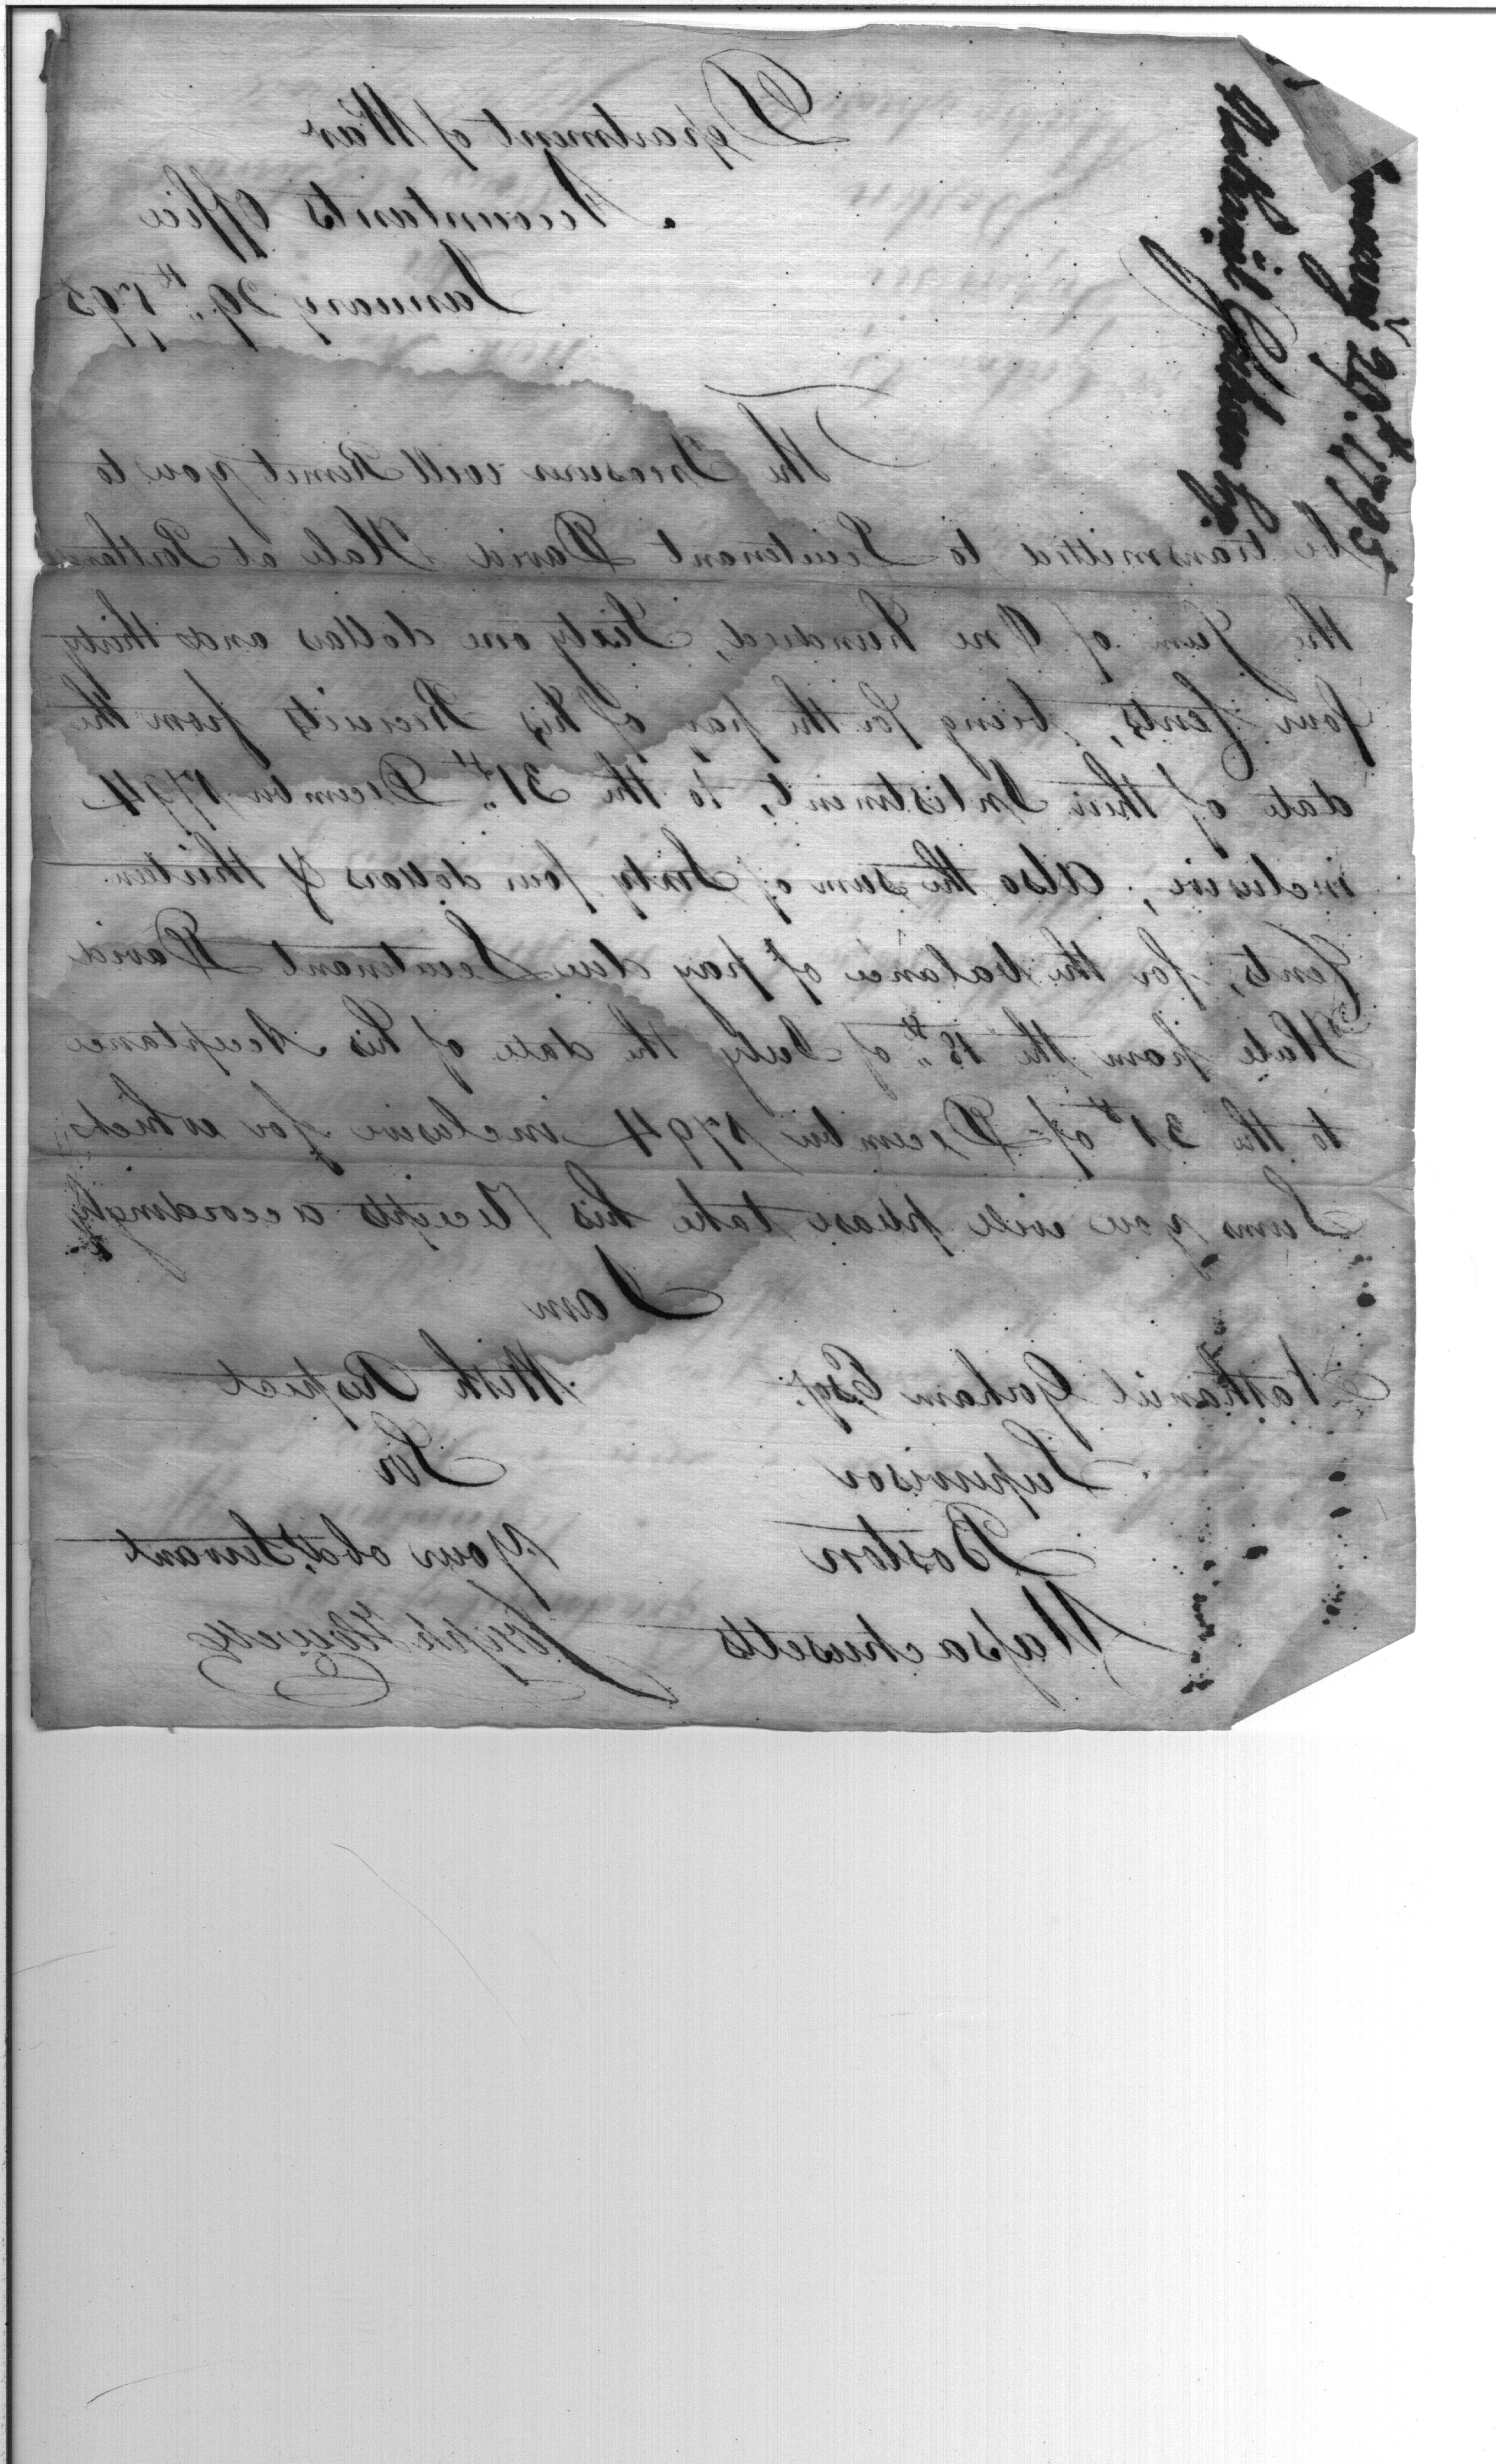 Department of War
Accountants Office
January 29th 1795
The Treasurer will Remit you to
be transmitted to Lieutenant David Hale at Portland
the Sum of One hundred, Sixty one dollars and thirty
four Cents, being for the pay of his Recruits from the
date of their Inlistment, to the 31st December 1794
inclusive, Also the sum of Sixty four dollars & thirteen
Cents, for the balance of pay due Lieutenant David
Hale from the 18th of July the date of his Acceptance
to the 31st of December 1794 inclusive for which
Sums you will please take his Receipts accordingly
I am
With Respect
Sir
Your obdt. Servant
Joseph Howell
Nathaniel Gorham Esqr.
Supervisor
Boston
Massachusetts
Nathaniel Gorham Esqr.
January 29th. 1795